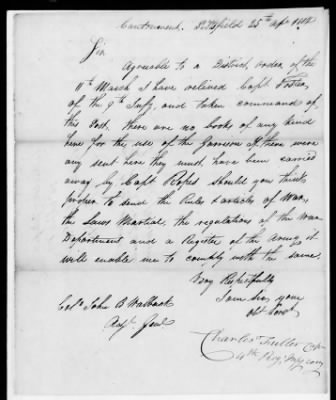 Cantonment, Pittsfield 25th Apl
Sir
Agreeable to a District order, of the
11th March I have relieved Capt Foster,
of the 9th Infy, and taken command of
this Post. there are no books of any kind
here for the use of the garrison if there were
any sent here they must have been carried
away by Capt Ropes should you think
proper to send the Rules & articles of War,
the Laws Martial, the regulations of the War
Department and a Register of the Army it
will enable me to comply with the same.
Very Respectfully
I am Sir, your
Obt Servt
Colo John B Walback
Adjt Genl
Charles Fuller Capt
4th Regt Infy